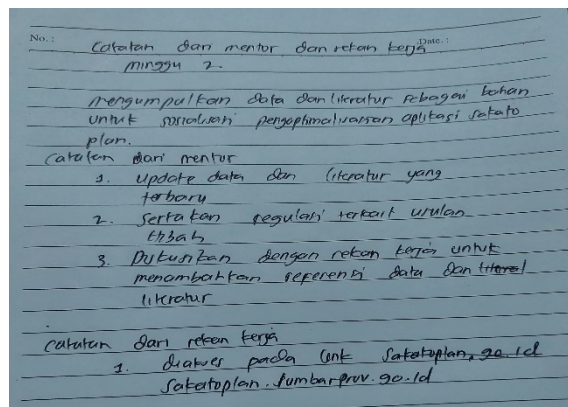 No.:
Date.:
Catatan dari mentor dan rekan kerja
minggu 2.
mengumpulkan data dan literatur sebagai bahan
untuk sosialisasi pengoptimalisasian aplikasi sakato
plan.
Catatan dari mentor
1. update data dan literatur yang
terbaru
2. sertakan regulasi terkait usulan
hibah
3. Diskusikan dengan rekan kerja untuk
menambahkan referensi data dan literat
literatur
catatan dari rekan kerja
1. diakses pada link Sakatoplan.go.id
Sakatoplan.sumbarprov.go.id